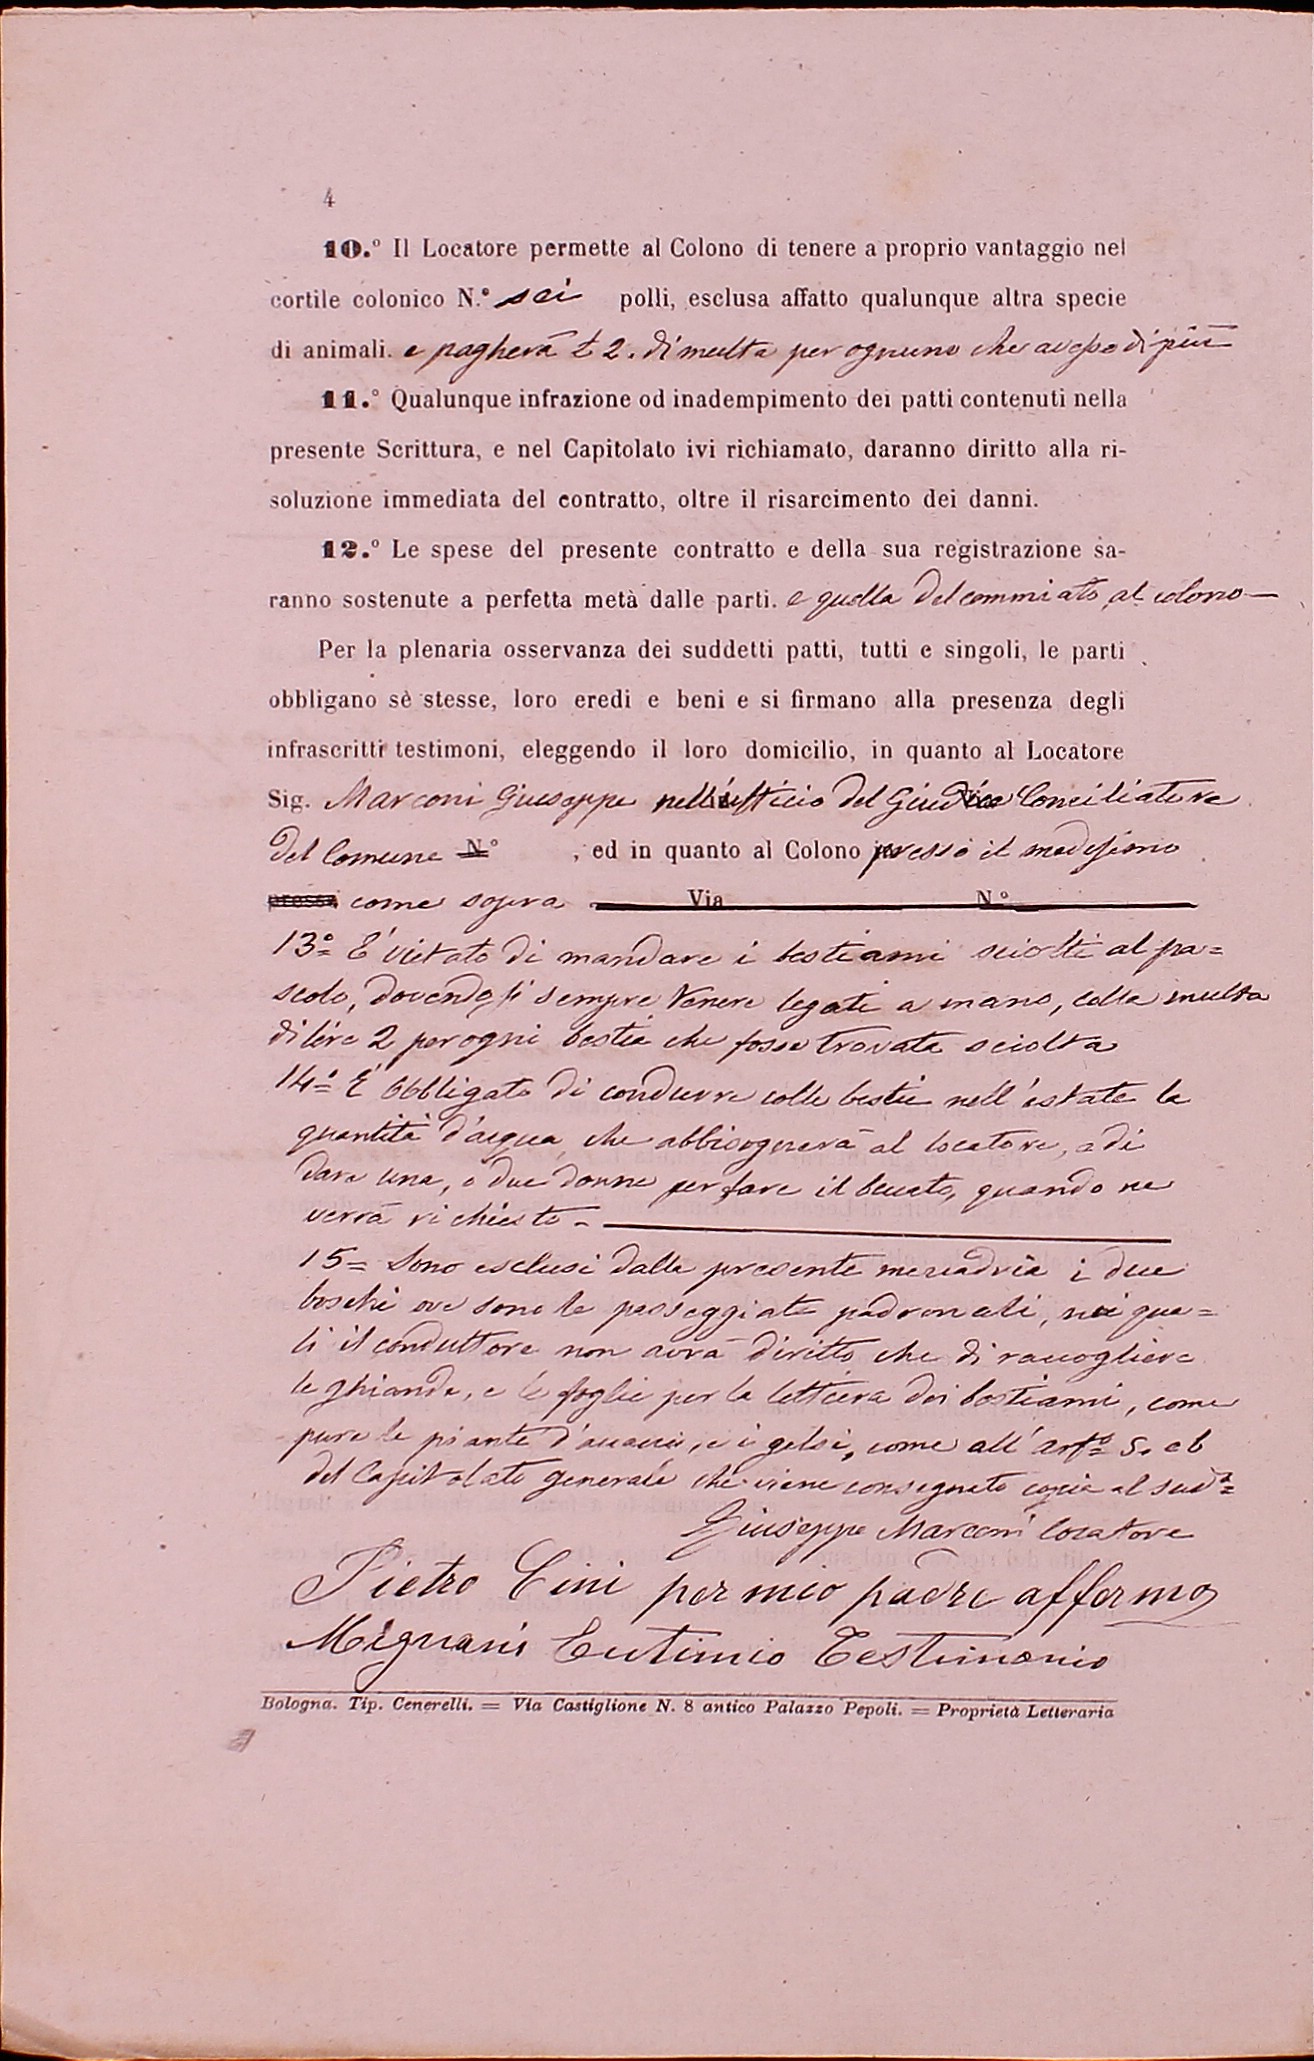 4
10.° Il Locatore permette al Colono di tenere a proprio vantaggio nel
cortile colonico N.° sei polli, esclusa affatto qualunque altra specie
di animali. e pagherà £ 2. di multa per ognuno che avesse di più
11.° Qualunque infrazione od inadempimento dei patti contenuti nella
presente Scrittura, e nel Capitolato ivi richiamato, daranno diritto alla ri-
soluzione immediata del contratto, oltre il risarcimento dei danni.
12.° Le spese del presente contratto e della sua registrazione sa-
ranno sostenute a perfetta metà dalle parti. e quella del commiato al colono—
Per la plenaria osservanza dei suddetti patti, tutti e singoli, le parti
obbligano sè stesse, loro eredi e beni e si firmano alla presenza degli
infrascritti testimoni, eleggendo il loro domicilio, in quanto al Locatore
Sig. Marconi Giuseppe nell'ufficio del Giudice Conciliatore
del Comune N.° , ed in quanto al Colono presso il medesimo
presso come sopra Via N.°
13.° È vietato di mandare i bestiami sciolti al pa=
scolo, dovendosi sempre tenere legati a mano, colla multa
di lire 2 per ogni bestia che fosse trovata sciolta
14.° È obbligato di condurre colle bestie nell'estate la
quantità d'acqua, che abbisognerà al locatore, e di
dare una, o due donne per fare il bucato, quando ne
verrà richiesto -
15= Sono esclusi dalla presente mezzadria i due
boschi ove sono le passeggiate padronali, nei qua=
li il conduttore non avrà diritto che di raccogliere
le ghiande, e le foglie per la lettiera dei bestiami, come
pure le piante d'acacie, e i gelsi, come all'art.° 5.
del Capitolato generale che viene consegnato copia al sud.°=
Giuseppe Marconi locatore
Pietro Cini per mio padre affermo
Mignani Eutimio Testimonio
Bologna. Tip. Cenerelli. = Via Castiglione N. 8 antico Palazzo Pepoli. = Proprietà Letteraria